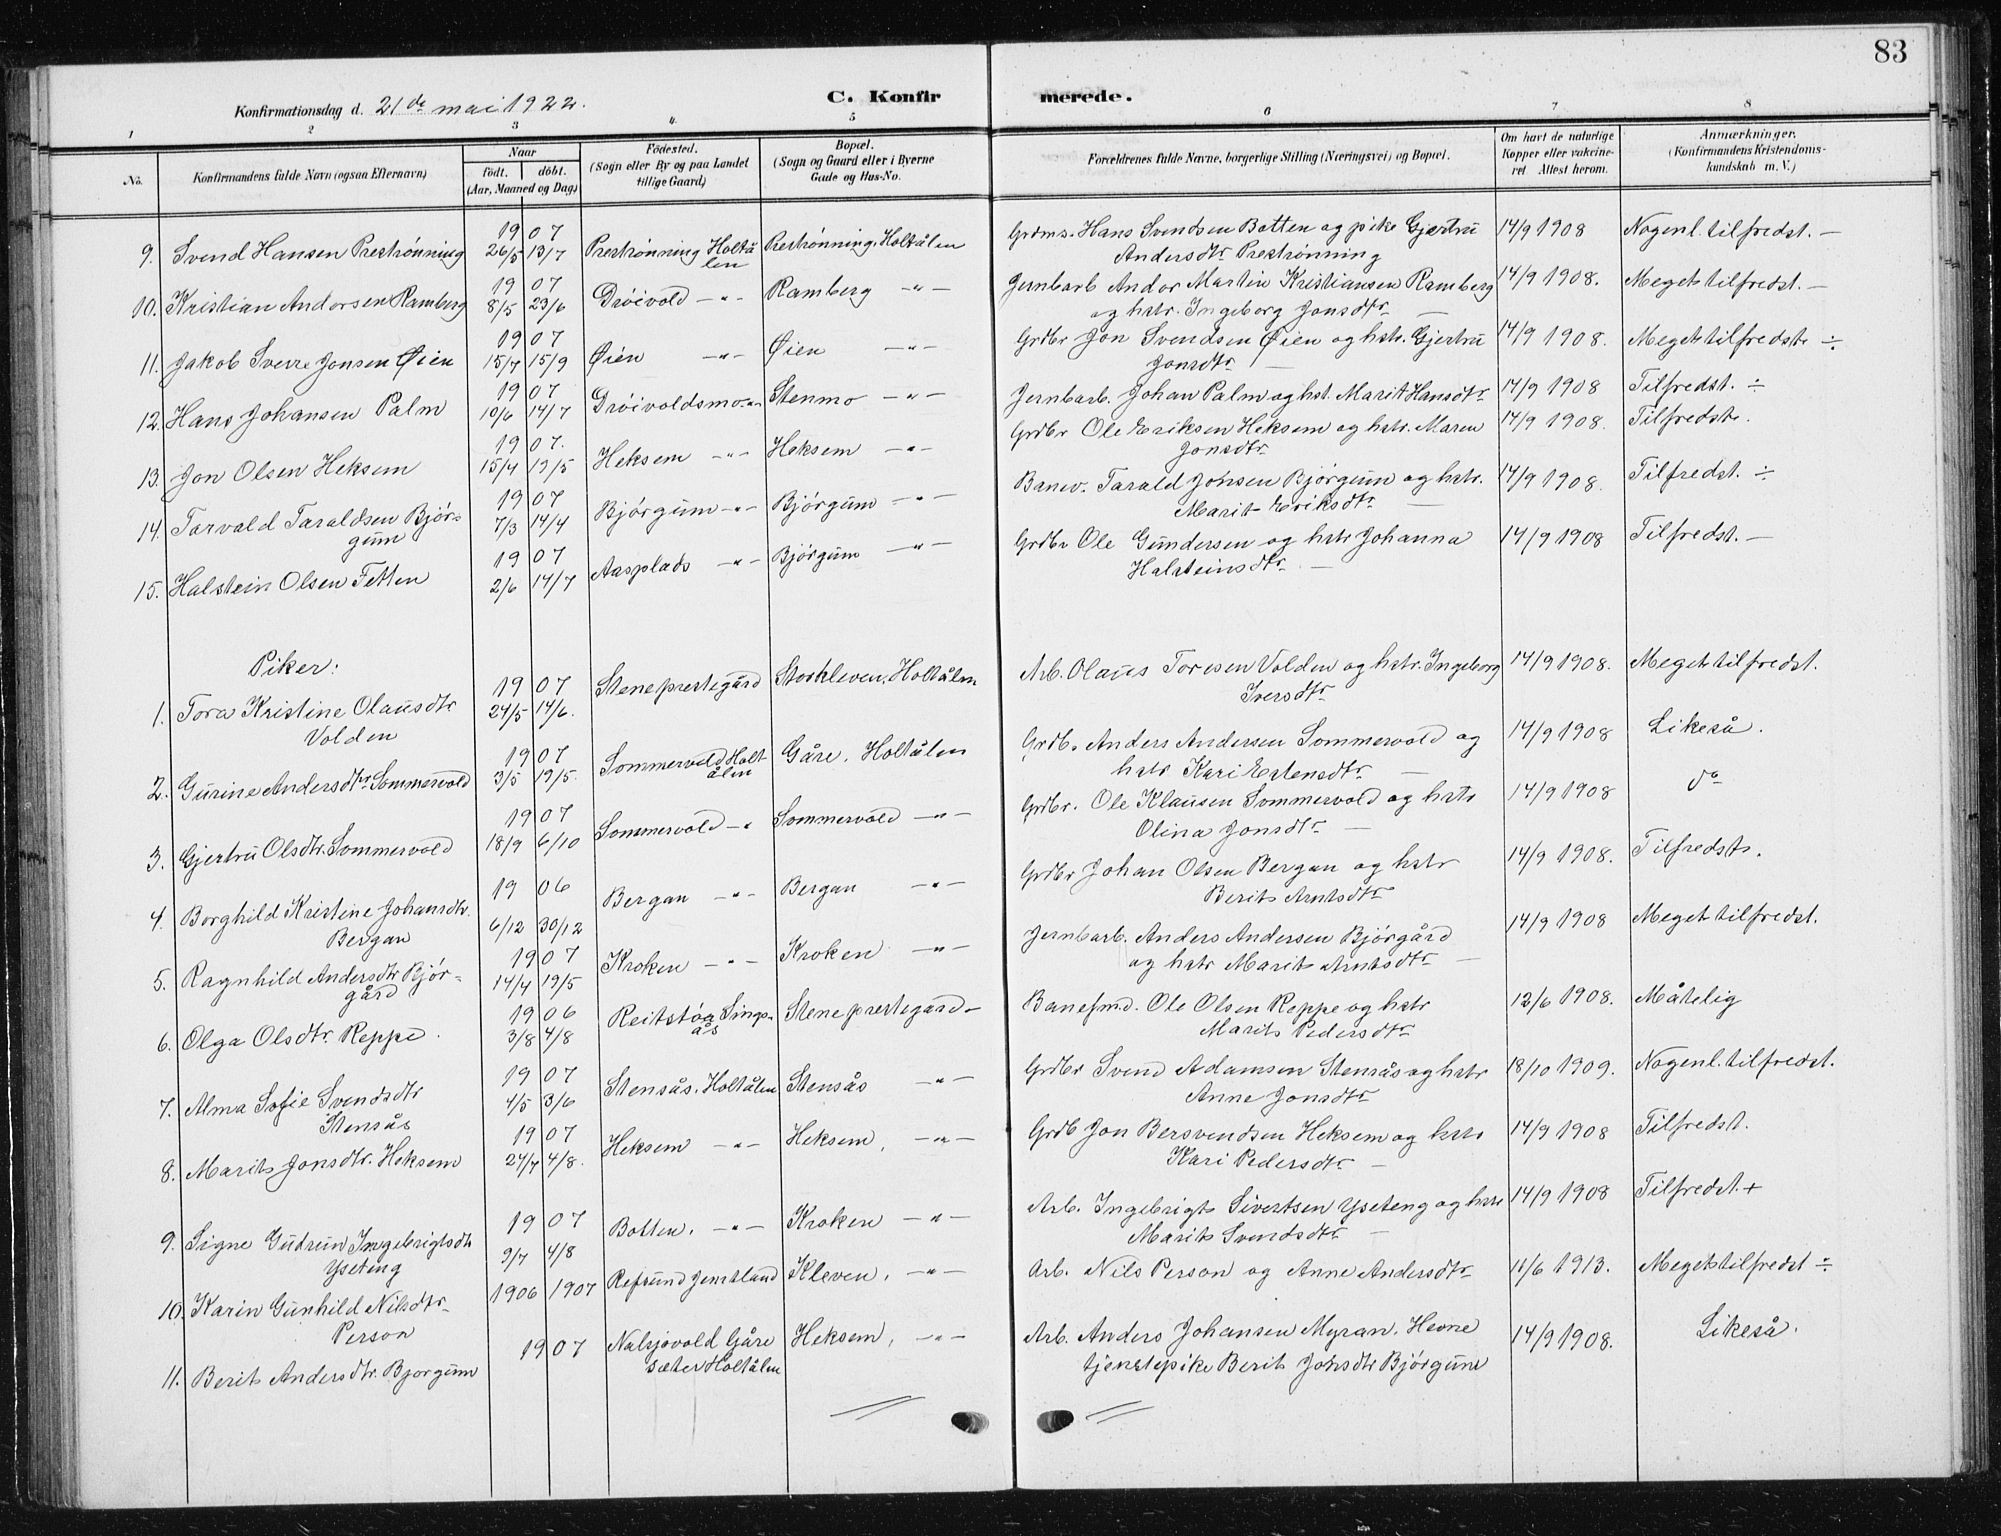 83
Konfirmationsdag d. 21de mai 1922. C. Konfirmerede.
1 2 3 4 5 6 7 8
No. Konfirmandens fulde Navn (ogsaa Efternavn) Naar født. døbt. (Aar, Maaned og Dag) Fødested. (Sogn eller By og paa Landet tillige Gaard) Bopæl. (Sogn og Gaard eller i Byerne Gade og Hus-No. Forældrenes fulde Navne, borgerlige Stilling (Næringsvei) og Bopæl. Om havt de naturlige Kopper eller vakcineret Attest herom. Anmærkninger. (Konfirmandens Kristendomskundskab m. V.)
9. Svend Hansen Prestrønning 1907 26/5 13/7 Prestrønning Holtålen Prestrønning, Holtålen Grdms. Hans Svendsen Botten og pike Gjertru 14/9 1908 Nogenl. tilfredst. —
Andersdtr Prestrønning
10. Kristian Andorsen Ramberg 1907 8/5 23/6 Drøivold —"— Ramberg —"— Jernbarb Andor Martin Kristiansen Ramberg 14/9 1908. Meget tilfredst. —
og hstr. Ingeborg Jonsdtr —
11. Jakob Sverre Jonsen Øien 1907 15/7 15/9 Øien —"— Øien —"— Grdbr Jon Svendsen Øien og hstr. Gjertru 14/9 1908. Meget tilfredst ÷
Jonsdtr —
12. Hans Johansen Palm 1907 10/6 14/7 Drøivoldsmo —"— Stenmo —"— Jernbarb. Johan Palm og hst. Marit Hansdtr 14/9 1908 Tilfredst. ÷
13. Jon Olsen Heksem 1907. 15/4 19/5 Heksem —"— Heksem —"— Grdbr Ole Eriksen Heksem og hstr. Maren 14/9 1908. Tilfredst.
Jonsdtr
14. Torvald Taraldsen Bjør- 1907 7/3 14/4 Bjørgum —"— Bjørgum —"— Banev. Tarald Jonsen Bjørgum og hstr. 14/9 1908. Tilfredst. ÷
gum Marit Eriksdtr —
15. Halstein Olsen Fetten 1907 2/6 14/7 Aasplads —"— Bjørgum —"— Grdbr Ole Gundersen og hstr Johanna 14/9 1908 Tilfredst. —
Halsteinsdtr —
Piker:
1. Tora Kristine Olausdtr 1907 24/5 14/6. Stene prestegård Storkleven, Holtålen Arb. Olaus Toresen Volden og hstr. Ingeborg 14/9 1908. Meget tilfredst.
Volden Iversdtr
2. Gurine Andersdtr Sommervold 1907 3/5 19/5. Sommervold Holtålen Gåre, Holtålen Grdb. Anders Andersen Sommervold og 14/9 1908 Likeså.
hstr Kari Estensdtr —
3. Gjertru Olsdtr. Sommervold 1907 18/9 6/10 Sommervold —" Sommervold —"— Grdbr. Ole Klausen Sommervold og hstr 14/9 1908 do
Olina Jonsdtr —
4. Borghild Kristine Johansdtr. 1906 6/12 30/12 Bergan —"— Bergan —"— Grdbr Johan Olsen Bergan og hstr 14/9 1908. Tilfredst.
Bergan Berit Arntsdtr
5. Ragnhild Andersdtr Bjør- 1907 14/4 19/5 Kroken —"— Kroken —"— Jernbarb. Anders Andersen Bjørgård 14/9 1908 Meget tilfredst.
gård og hstr Marit Arntsdtr —
6. Olga Olsdtr. Reppe. 1906 3/8 4/8 Reitstøa Singsås Stene prestegård — Banefmd. Ole Olsen Reppe og hstr 12/6 1908. Måtelig
Marit Pedersdtr
7. Alma Sofie Svendsdtr 1907 4/5 3/6 Stensås, Holtålen Stensås —"— Grdbr Svend Adamsen Stensås og hstr 18/10 1909. Nogenl. tilfredst.
Stensås Anne Jonsdtr
8. Marit Jonsdtr. Heksem 1907 24/7 4/8. Heksem —"— Heksem, —"— Grdb Jon Bersvendsen Heksem og hstr 14/9 1908 Tilfredst.
Kari Pedersdtr —
9. Signe Gudrun Ingebrigtsdtr 1907 9/7 4/8 Botten. —"— Kroken —"— Arb. Ingebrigt Sivertsen Yseteng og hstr 14/9 1908 Tilfredst. +
Yseteng Marit Svendsdtr —
10. Karin Gunhild Nilsdtr 1906 1907 Refsund Jemtland Kleven, —"— Arb. Nils Person og Anne Andersdtr 11/6 1913. Meget tilfredst ÷
Person
11. Berit Andersdtr. Bjorgum 1907 Nalsjovold Gåre Heksem, —"— Arb. Anders Johansen Myran, Hevne 14/9 1908. Likeså.
sæter Holtålen tjenstepike Berit Jonsdtr Bjørgum